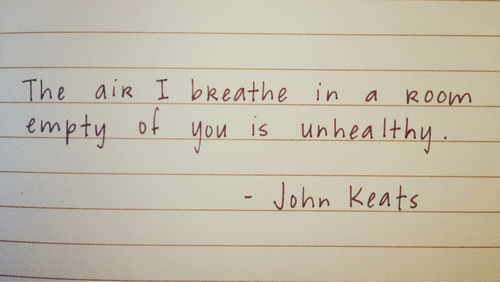 The air I breathe in a room
empty of you is unhealthy.
- John Keats